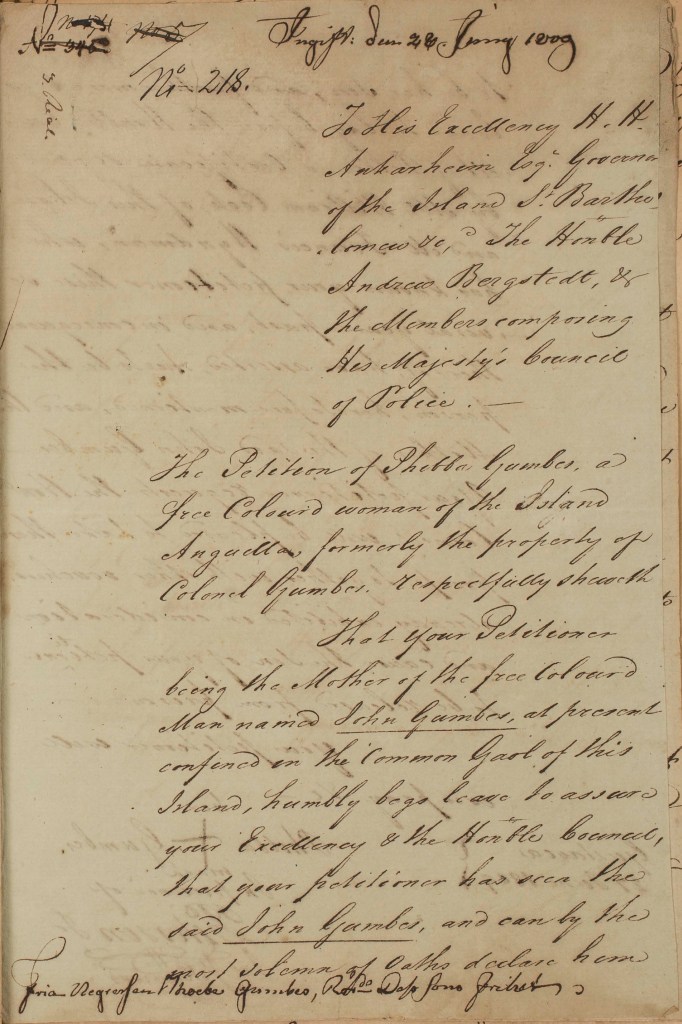 Nº 218.
Ingif: den 28 Juny 1809
To His Excellency H. H.
Ankarheim Esqr. Governor
of the Island St. Bartho-
lomew &c, The Honble
Andrew Bergstedt, &
the Members composing
His Majesty's Council
of Police. —
The Petition of Phebba Gumbes, a
free Colourd woman of the Island
Anguilla, formerly the property of
Colonel Gumbes. respectfully sheweth
That your Petitioner
being the Mother of the free Colourd
Man named John Gumbes, at present
confined in the Common Gaol of this
Island, humbly begs leave to assure
your Excellency & the Honble Council,
that your petitioner has seen the
said John Gumbes, and can by the
most solemn of Oaths declare him
Fria Phoebe Gumbes, Dess Sons Frihet